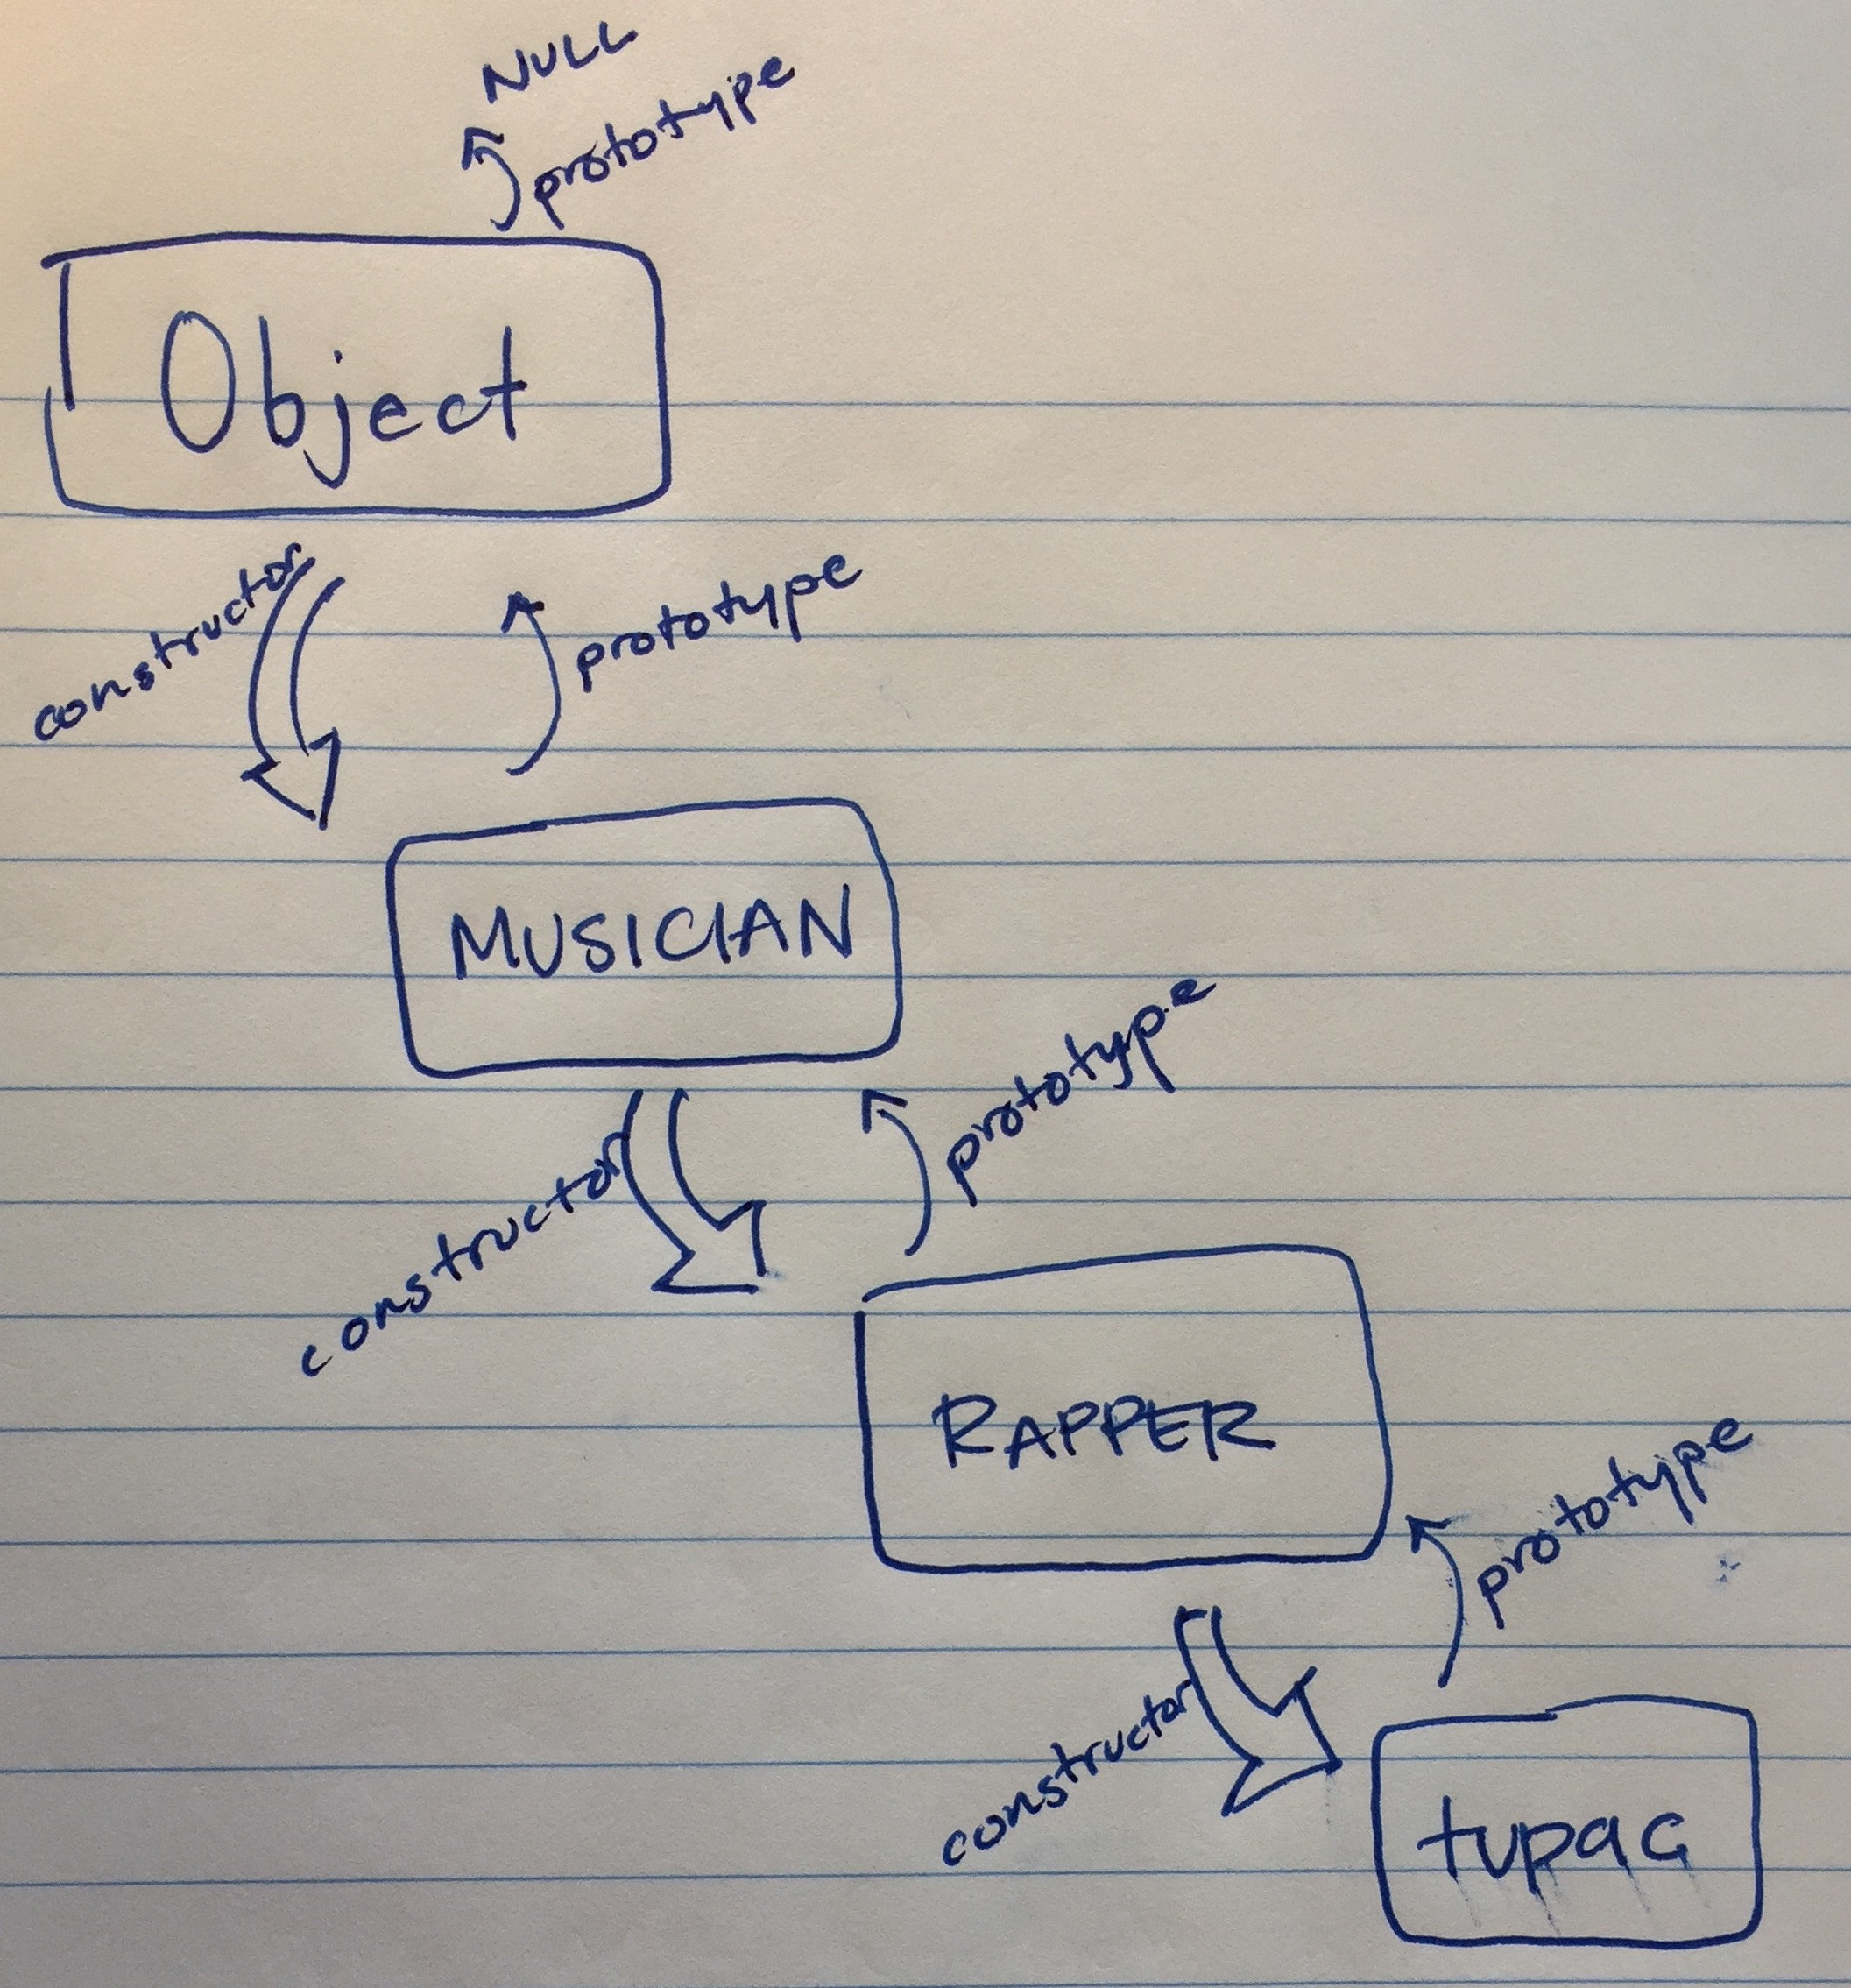 NULL
prototype
Object
constructor
prototype
MUSICIAN
constructor
prototype
RAPPER
constructor
prototype
tupac